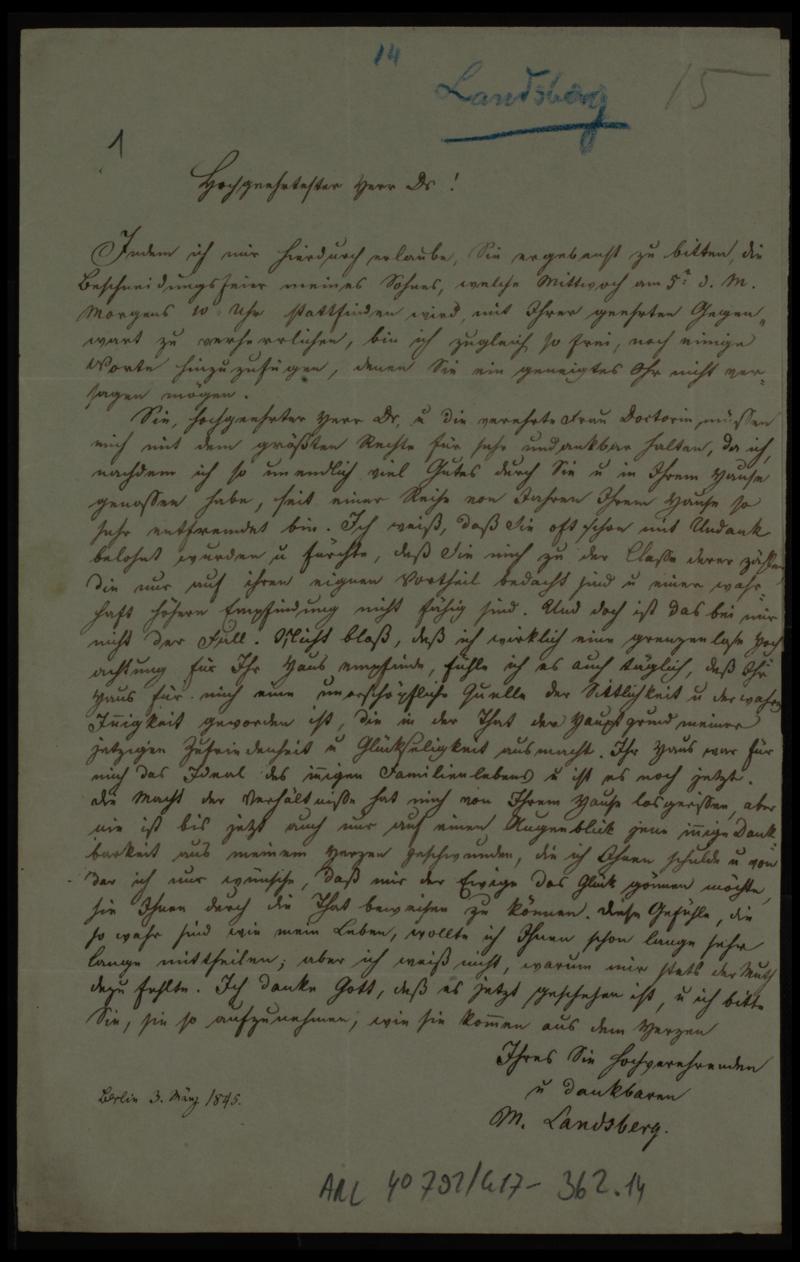 14
Landsberg
15
1
Hochgeehrtester Herr Dr !
Indem ich mir hierdurch erlaube, Sie ergebenst zu bitten, die
Beschneidungsfeier meines Sohnes, welche Mittwoch am 5t. d. M.
Morgens 10 Uhr stattfinden wird, mit Ihrer geehrten Gegen„
wart zu verherrlichen, bin ich zugleich so frei, noch einige
Worte hinzuzufügen, denen Sie ein geneigtes Ohr nicht ver-
sagen mögen.
Sie, hochgeehrter Herr Dr, u die verehrte Frau Doctorin, müssen
mich mit dem größten Rechte für sehr undankbar halten, da ich,
nachdem ich so unendlich viel Gutes durch Sie u in Ihrem Hause
genossen habe, seit einer Reihe von Jahren Ihrem Hause so
sehr entfremdet bin. Ich weiß, daß Sie oft schon mit Undank
belohnt wurden u fürchte, daß Sie mich zu der Classe derer zählen
die nur auf ihren eignen Vortheil bedacht sind u einer wahr-
haft höhern Empfindung nicht fähig sind. Und doch ist das bei mir
nicht der Fall. Nicht bloß, daß ich wirklich eine grenzenlose Hoch
achtung für Ihr Haus empfinde, fühle ich es auch täglich, daß Ihr
Haus für mich eine unerschöpfliche Quelle der Sittlichkeit u der wahren
Iñigkeit geworden ist, die in der That der Hauptgrund meiner
jetzigen Zufriedenheit u Glückseligkeit ausmacht. Ihr Haus war für
mich das Ideal des iñigen Familienlebens u ist es noch jetzt.
Die Macht der Verhältnisse hat mich von Ihrem Hause losgerissen, aber
nie ist bis jetzt auch nur auf einen Augenblick jene iñige Dank
barkeit aus meinem Herzen geschwunden, die ich Ihnen schulde u von
der ich nur wünsche, daß mir der Ewige das Glück gönnen möchte,
sie Ihnen durch die That beweisen zu können. Diese Gefühle, die
so wahr sind wie mein Leben, wollte ich Ihnen schon lange sehr
lange mittheilen; aber ich weiß nicht, warum mir stets der Muth
dazu fehlte. Ich danke Gott, daß es jetzt geschehen ist, u ich bitte
Sie, sie so aufzunehmen, wie sie kom̄en aus dem Herzen
Ihres Sie hochverehrenden
u dankbaren
M. Landsberg.
Berlin 3. März 1845.
ARC 40792/G17- 362.14